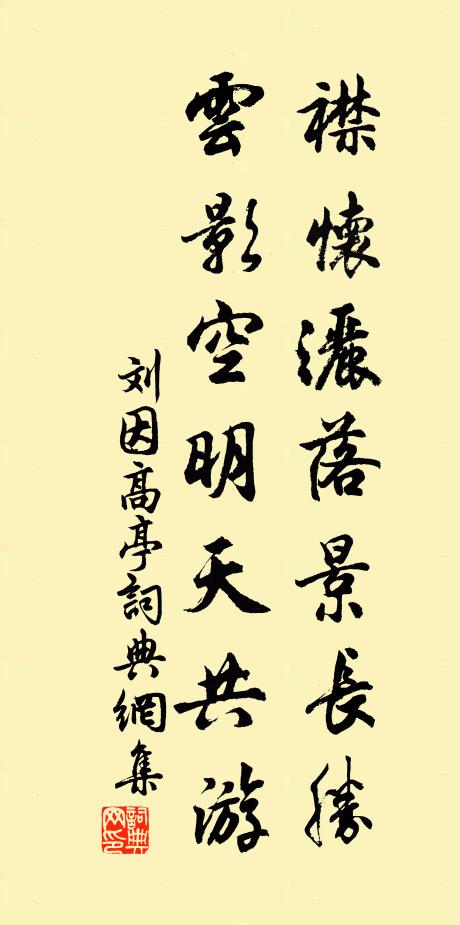 襟懷灑落景長勝
雲影空明天共游
刘因高亭詞典網集
詞典
网印